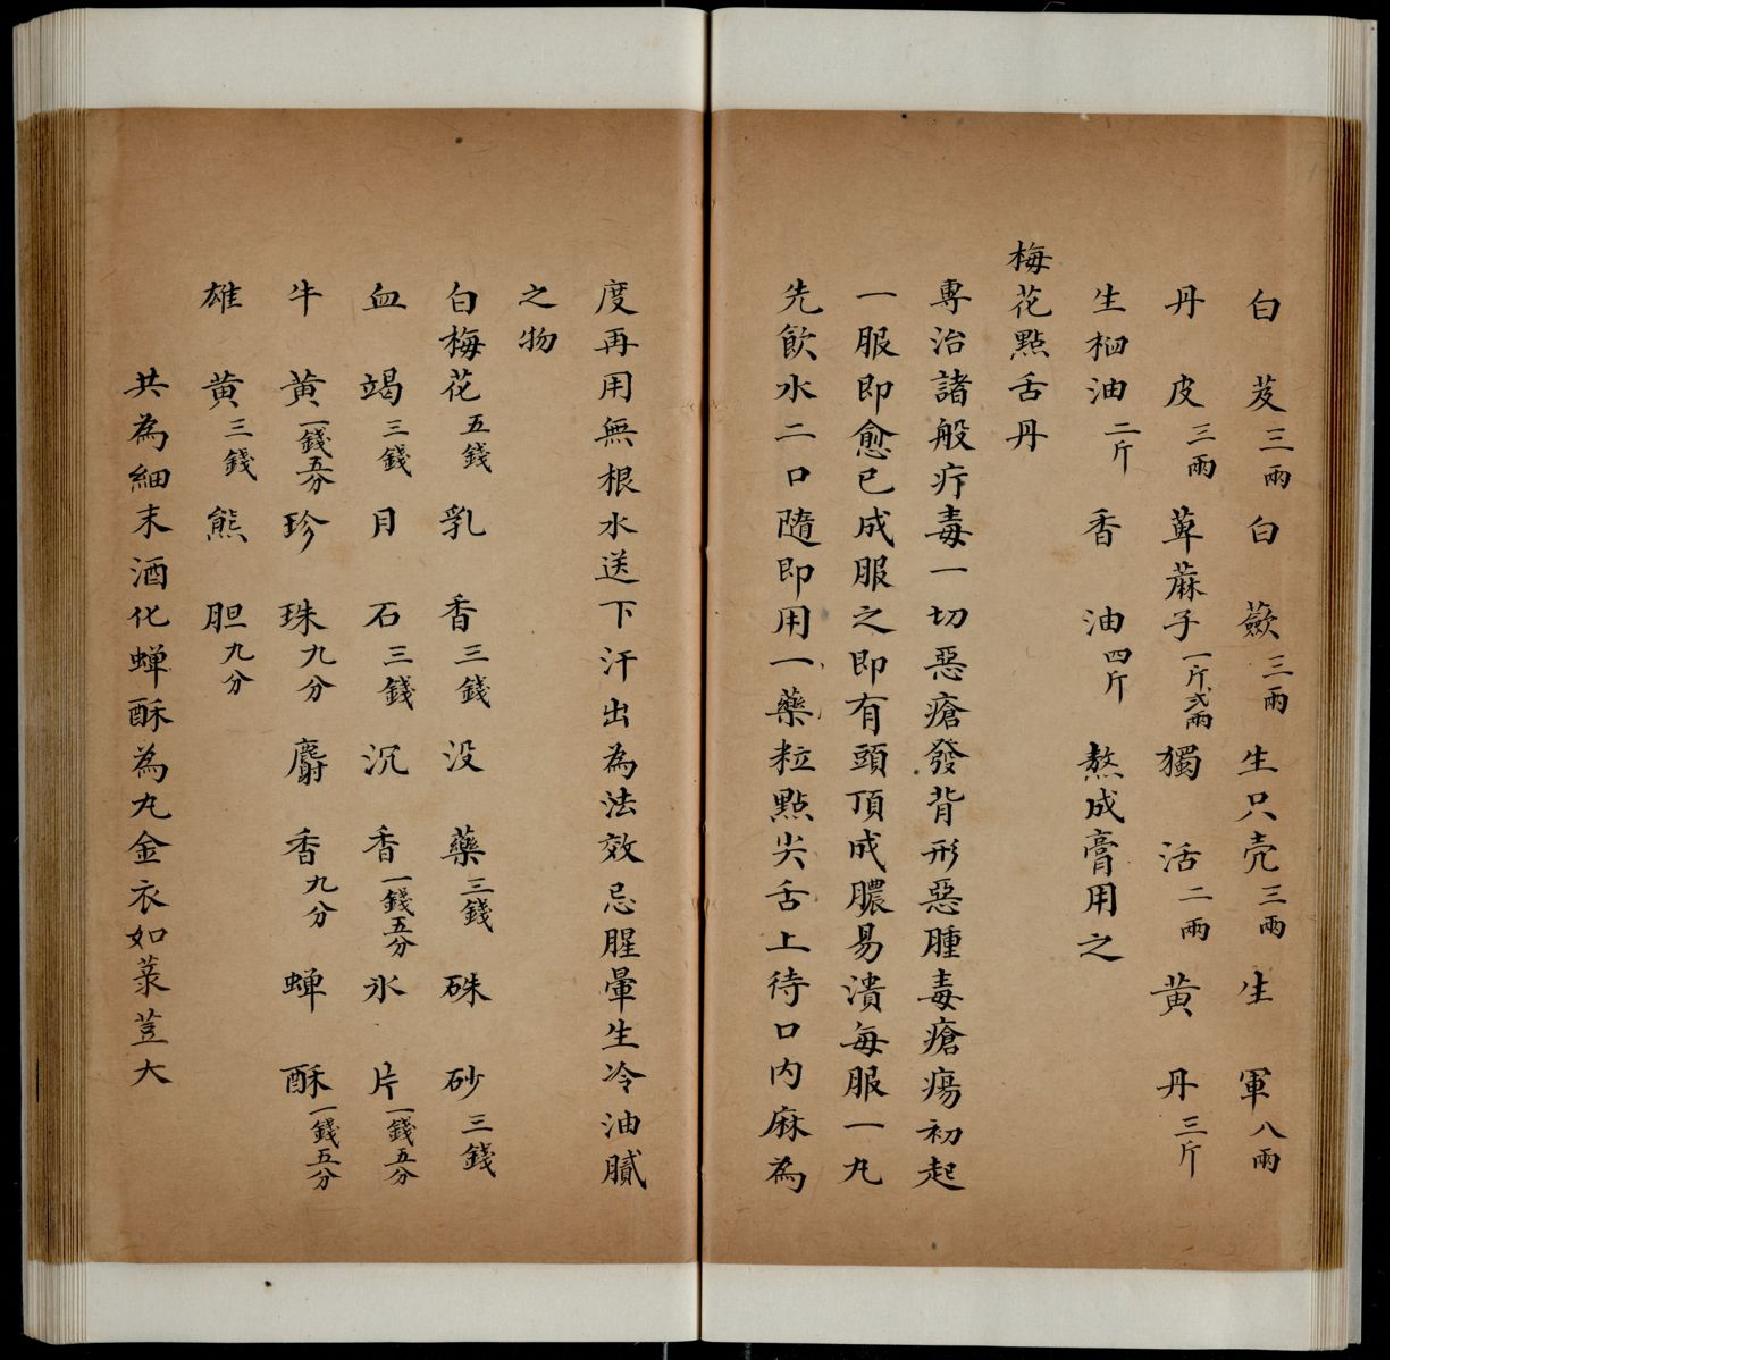 白芨三兩白蘞三兩生只壳三兩生軍八兩
丹皮三兩萆蔴子一斤弍兩獨活二兩黃丹三斤
生栢油二斤香油四斤熬成膏用之
梅花點舌丹
專治諸般疔毒一切惡瘡發背形惡腫毒瘡瘍初起
一服即愈已成服之即有頭頂成膿易潰每服一丸
先飲水二口隨即用一藥粒點尖舌上待口内麻為
度再用無根水送下汗出為法效忌腥暈生冷油膩
之物
白梅花五錢乳香三錢没藥三錢硃砂三錢
血竭三錢月石三錢沉香一錢五分氷片一錢五分
牛黃一錢五分珍珠九分麝香九分蟬酥一錢五分
雄黃三錢熊胆九分
共為細末酒化蟬酥為丸金衣如菉荳大